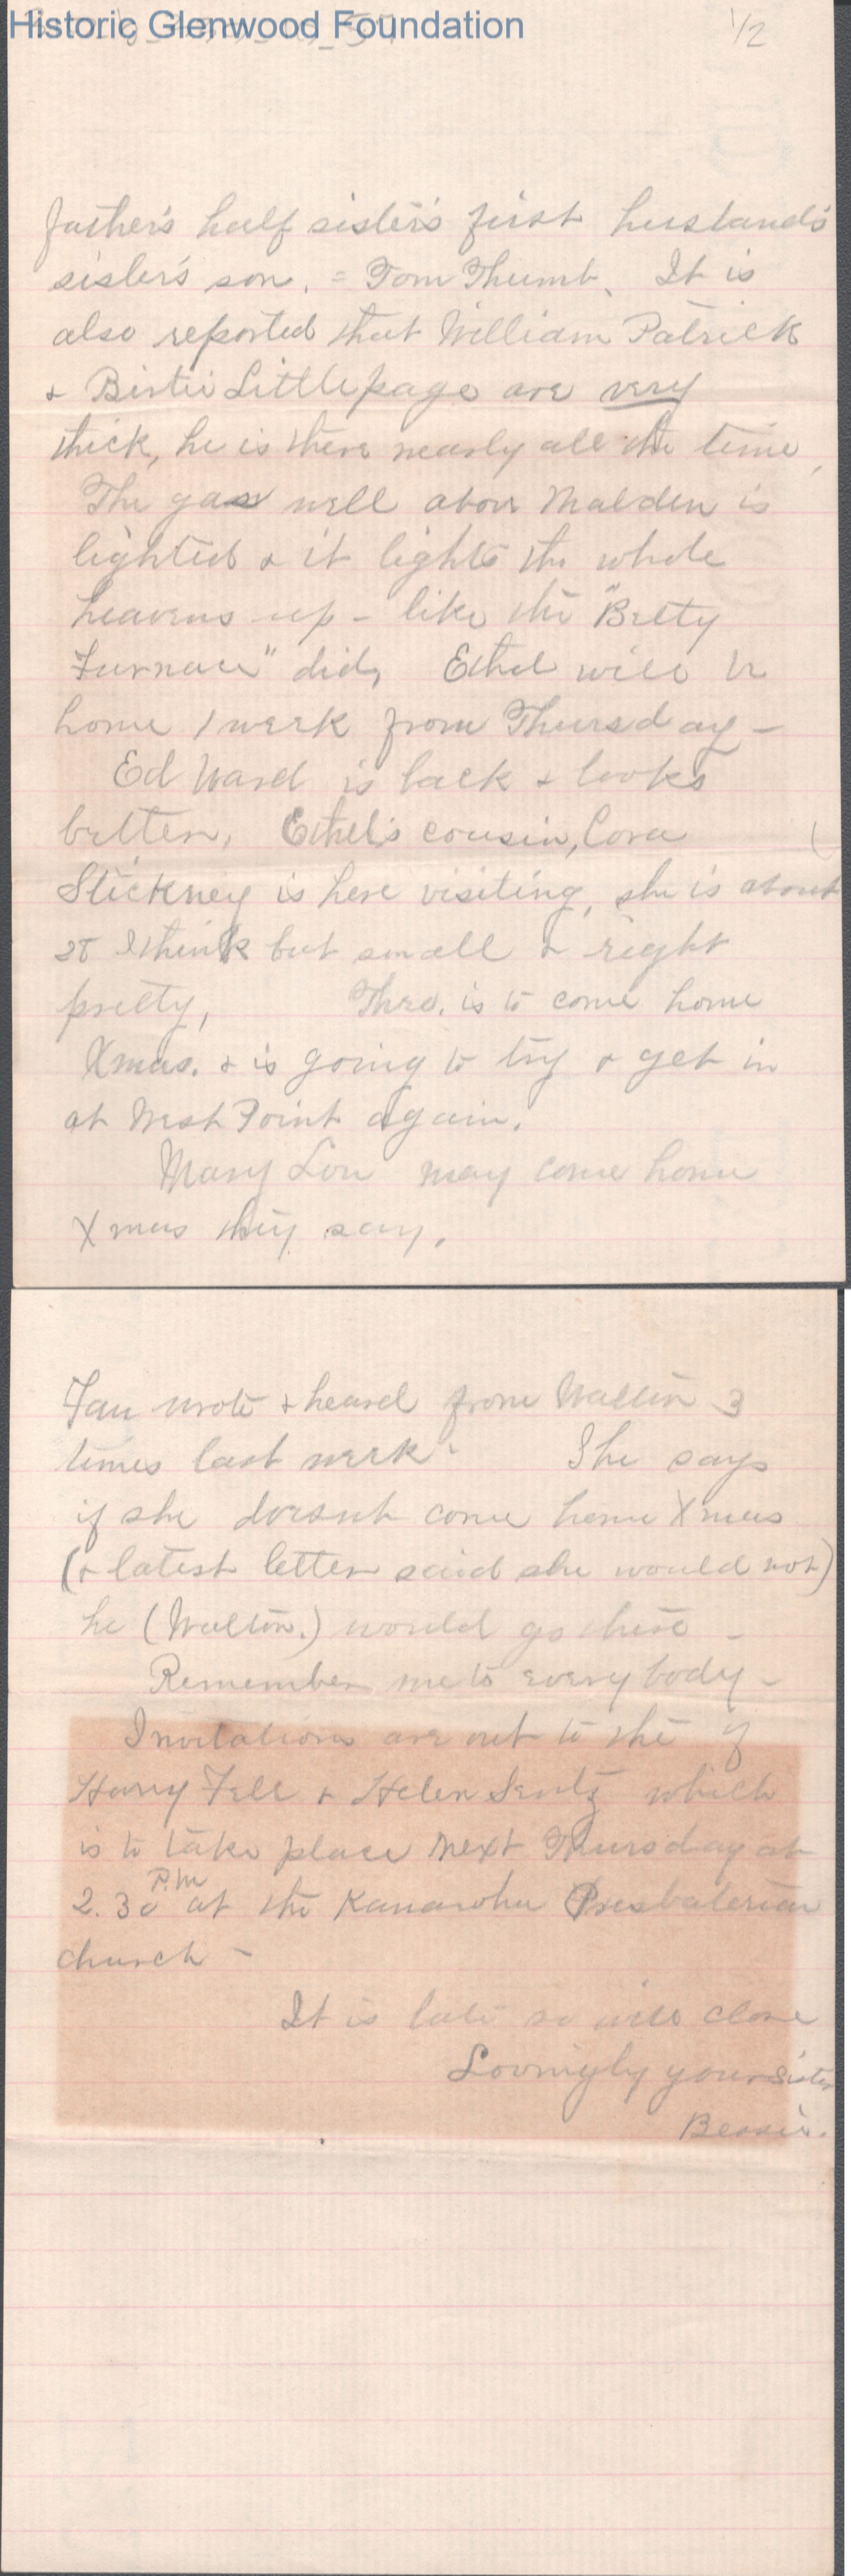 Historic Glenwood Foundation
1/2
father's half sister's first husband's
sister's son. = Tom Thumb. It is
also reported that William Patrick
& Birtie Littlepage are very
thick, he is there nearly all the time,
The gas well above Malden is
lighted & it lights the whole
heavens up - like the "Betty
Furnace" did, Ethel will be
home 1 week from Thursday -
Ed Ward is back & looks
better, Ethel's cousin, Cora
Stickney is here visiting, she is about
28 I think but small & right
pretty, Theo. is to come home
Xmas. & is going to try & get in
at West Point again.
Mary Lou may come home
Xmas they say.
Fan wrote & heard from Walton 3
times last week. She says
if she doesnt come home Xmas
(& latest letter said she would not)
he (Walton.) would go there -
Remember me to every body -
Invitations are out to the of
Harry Fell & Helen which
is to take place next Thursday at
2.30 P.M at the Kanawha Presbaterian
church -
It is late so will close
Lovingly your sister
Bessie.